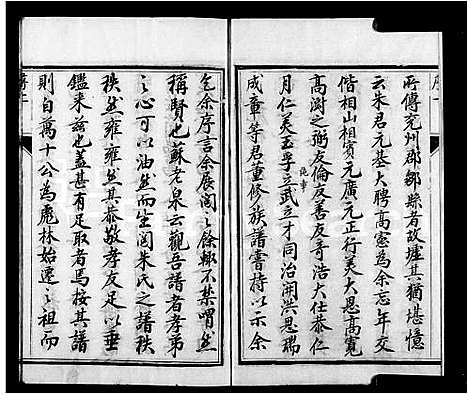 所傳兗州郡鄒縣者故墟其猶堪憶
云朱君元基大聘高憲為余忘年交
偕相山相賓元廣元正行美大恩高寬
高澍之弼友倫友善友奇浩大任恭仁
月仁美玉孚立武立才同治開洪思瑞
成章等君重修族譜書持以示余
乞余序言余展閱之餘輙不禁喟然
稱賢也蘇老泉云觀吾譜者孝弟
之心可以油然而生閱朱氏之譜秩
秩然雍雍然其恭敬孝友足以垂
鑑来茲也蓋甚有足取者焉按其譜
則自萬十公為鹿林始遷之祖而
序一
序二